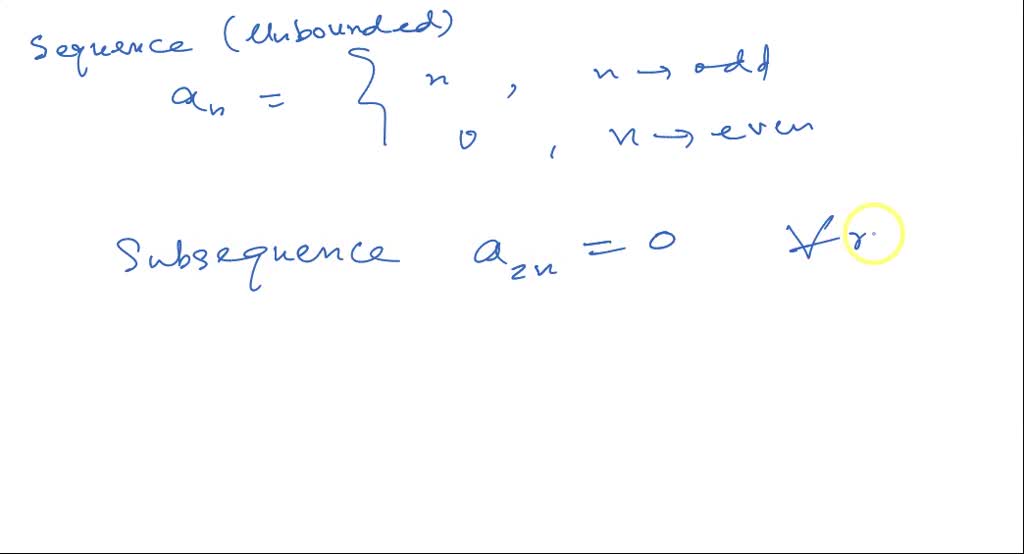 Sequence (Unbounded)
aₙ = { n , n → odd
0 , n → even
Subsequence a₂ₙ = 0 ∀